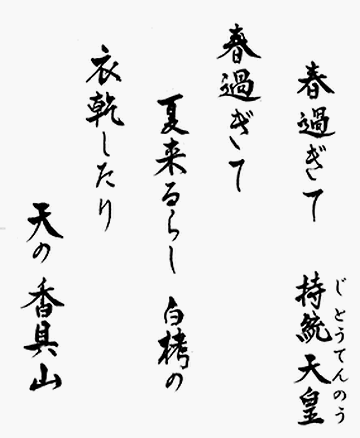 春過ぎて 持統天皇
じとうてんのう
春過ぎて
夏来るらし 白栲の
衣乾したり
天の香具山